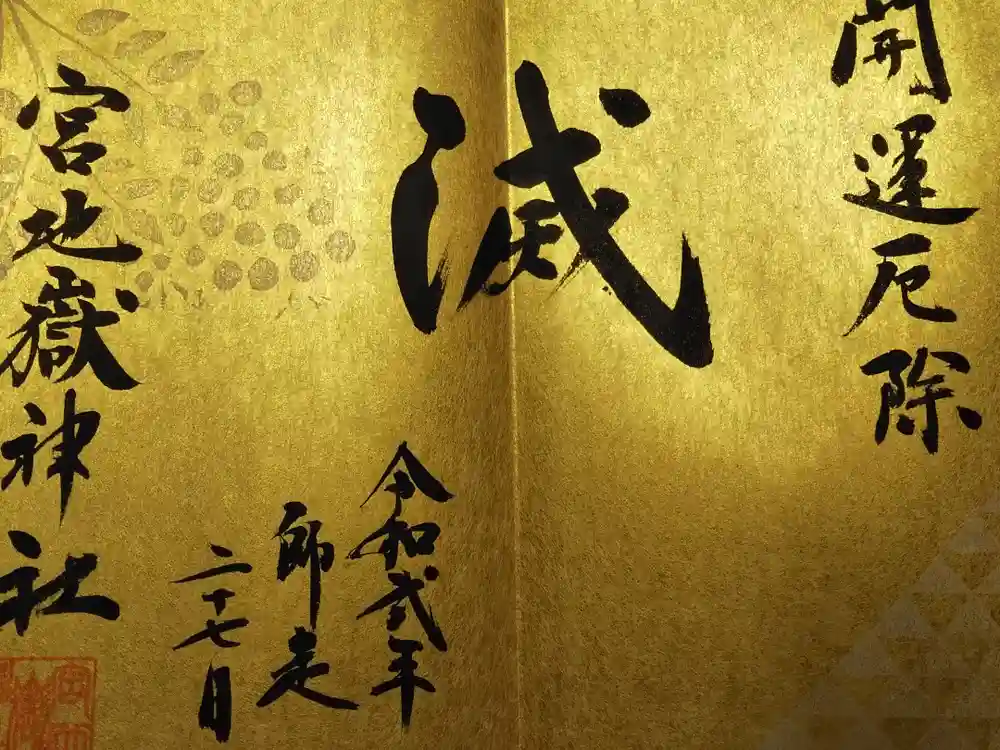 開運厄除
滅
令和弐年
師走
二十七日
宮地嶽神社